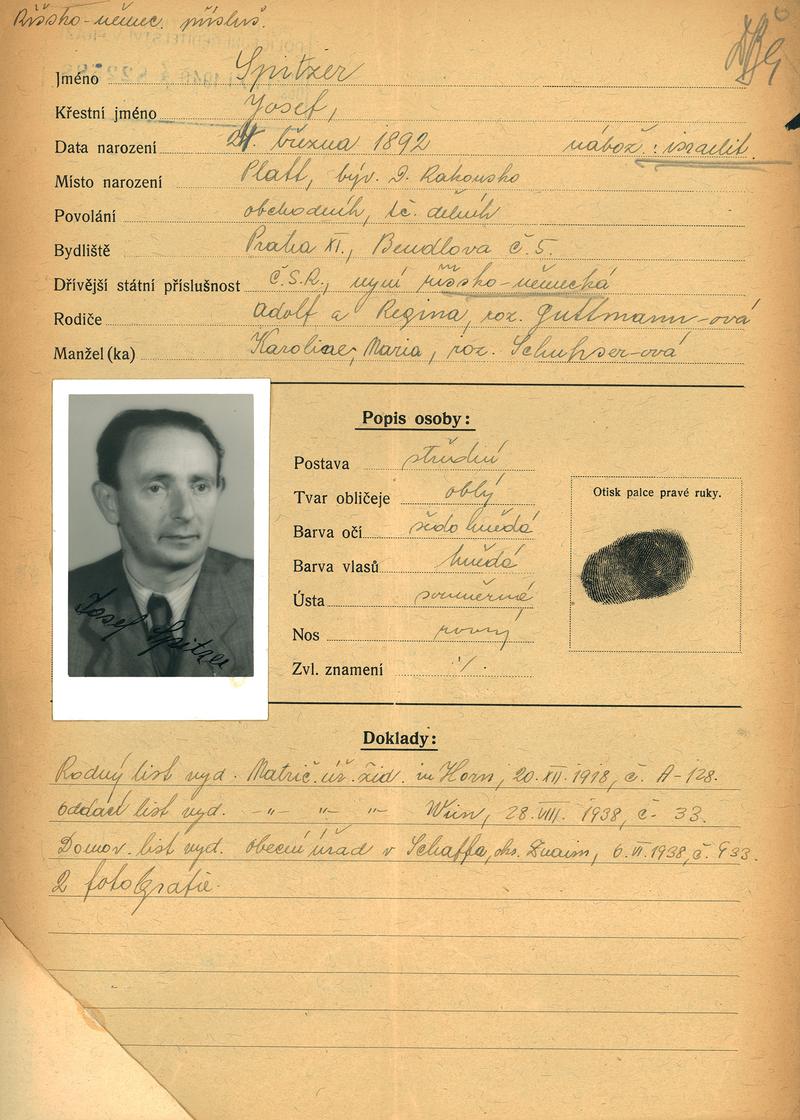 Říšsko-němec. přísluš.
Jméno Spitzer
Křestní jméno Josef,
Data narození 24. března 1892 nábož.: israelit.
Místo narození Platt, býv. D. Rakousko
Povolání obchodník, tč. dělník
Bydliště Praha XI., Bendlova č. 5.
Dřívější státní příslušnost Č.S.R., nyní říšsko-německá
Rodiče Adolf a Regina, roz. Guttmann-ová
Manžel(ka) Karoline, Maria, roz.
Popis osoby:
Postava střední
Tvar obličeje oblý
Barva očí šedo hnědá
Barva vlasů hnědá
Ústa souměrná
Nos rovný
Zvl. znamení ·/·
Otisk palce pravé ruky.
Josef Spitzer
Doklady:
Rodný list vyd. Matrič. úř. žid. in Horn, 20. XII. 1918, č. A-128.
oddací list vyd. -„- -„- -„- Wien, 28. VIII. 1938, č. 33.
Domov. list vyd. obecní úřad v Schaffa, okr. Znaim, 6. VI. 1938, č. 933.
2 fotografie.